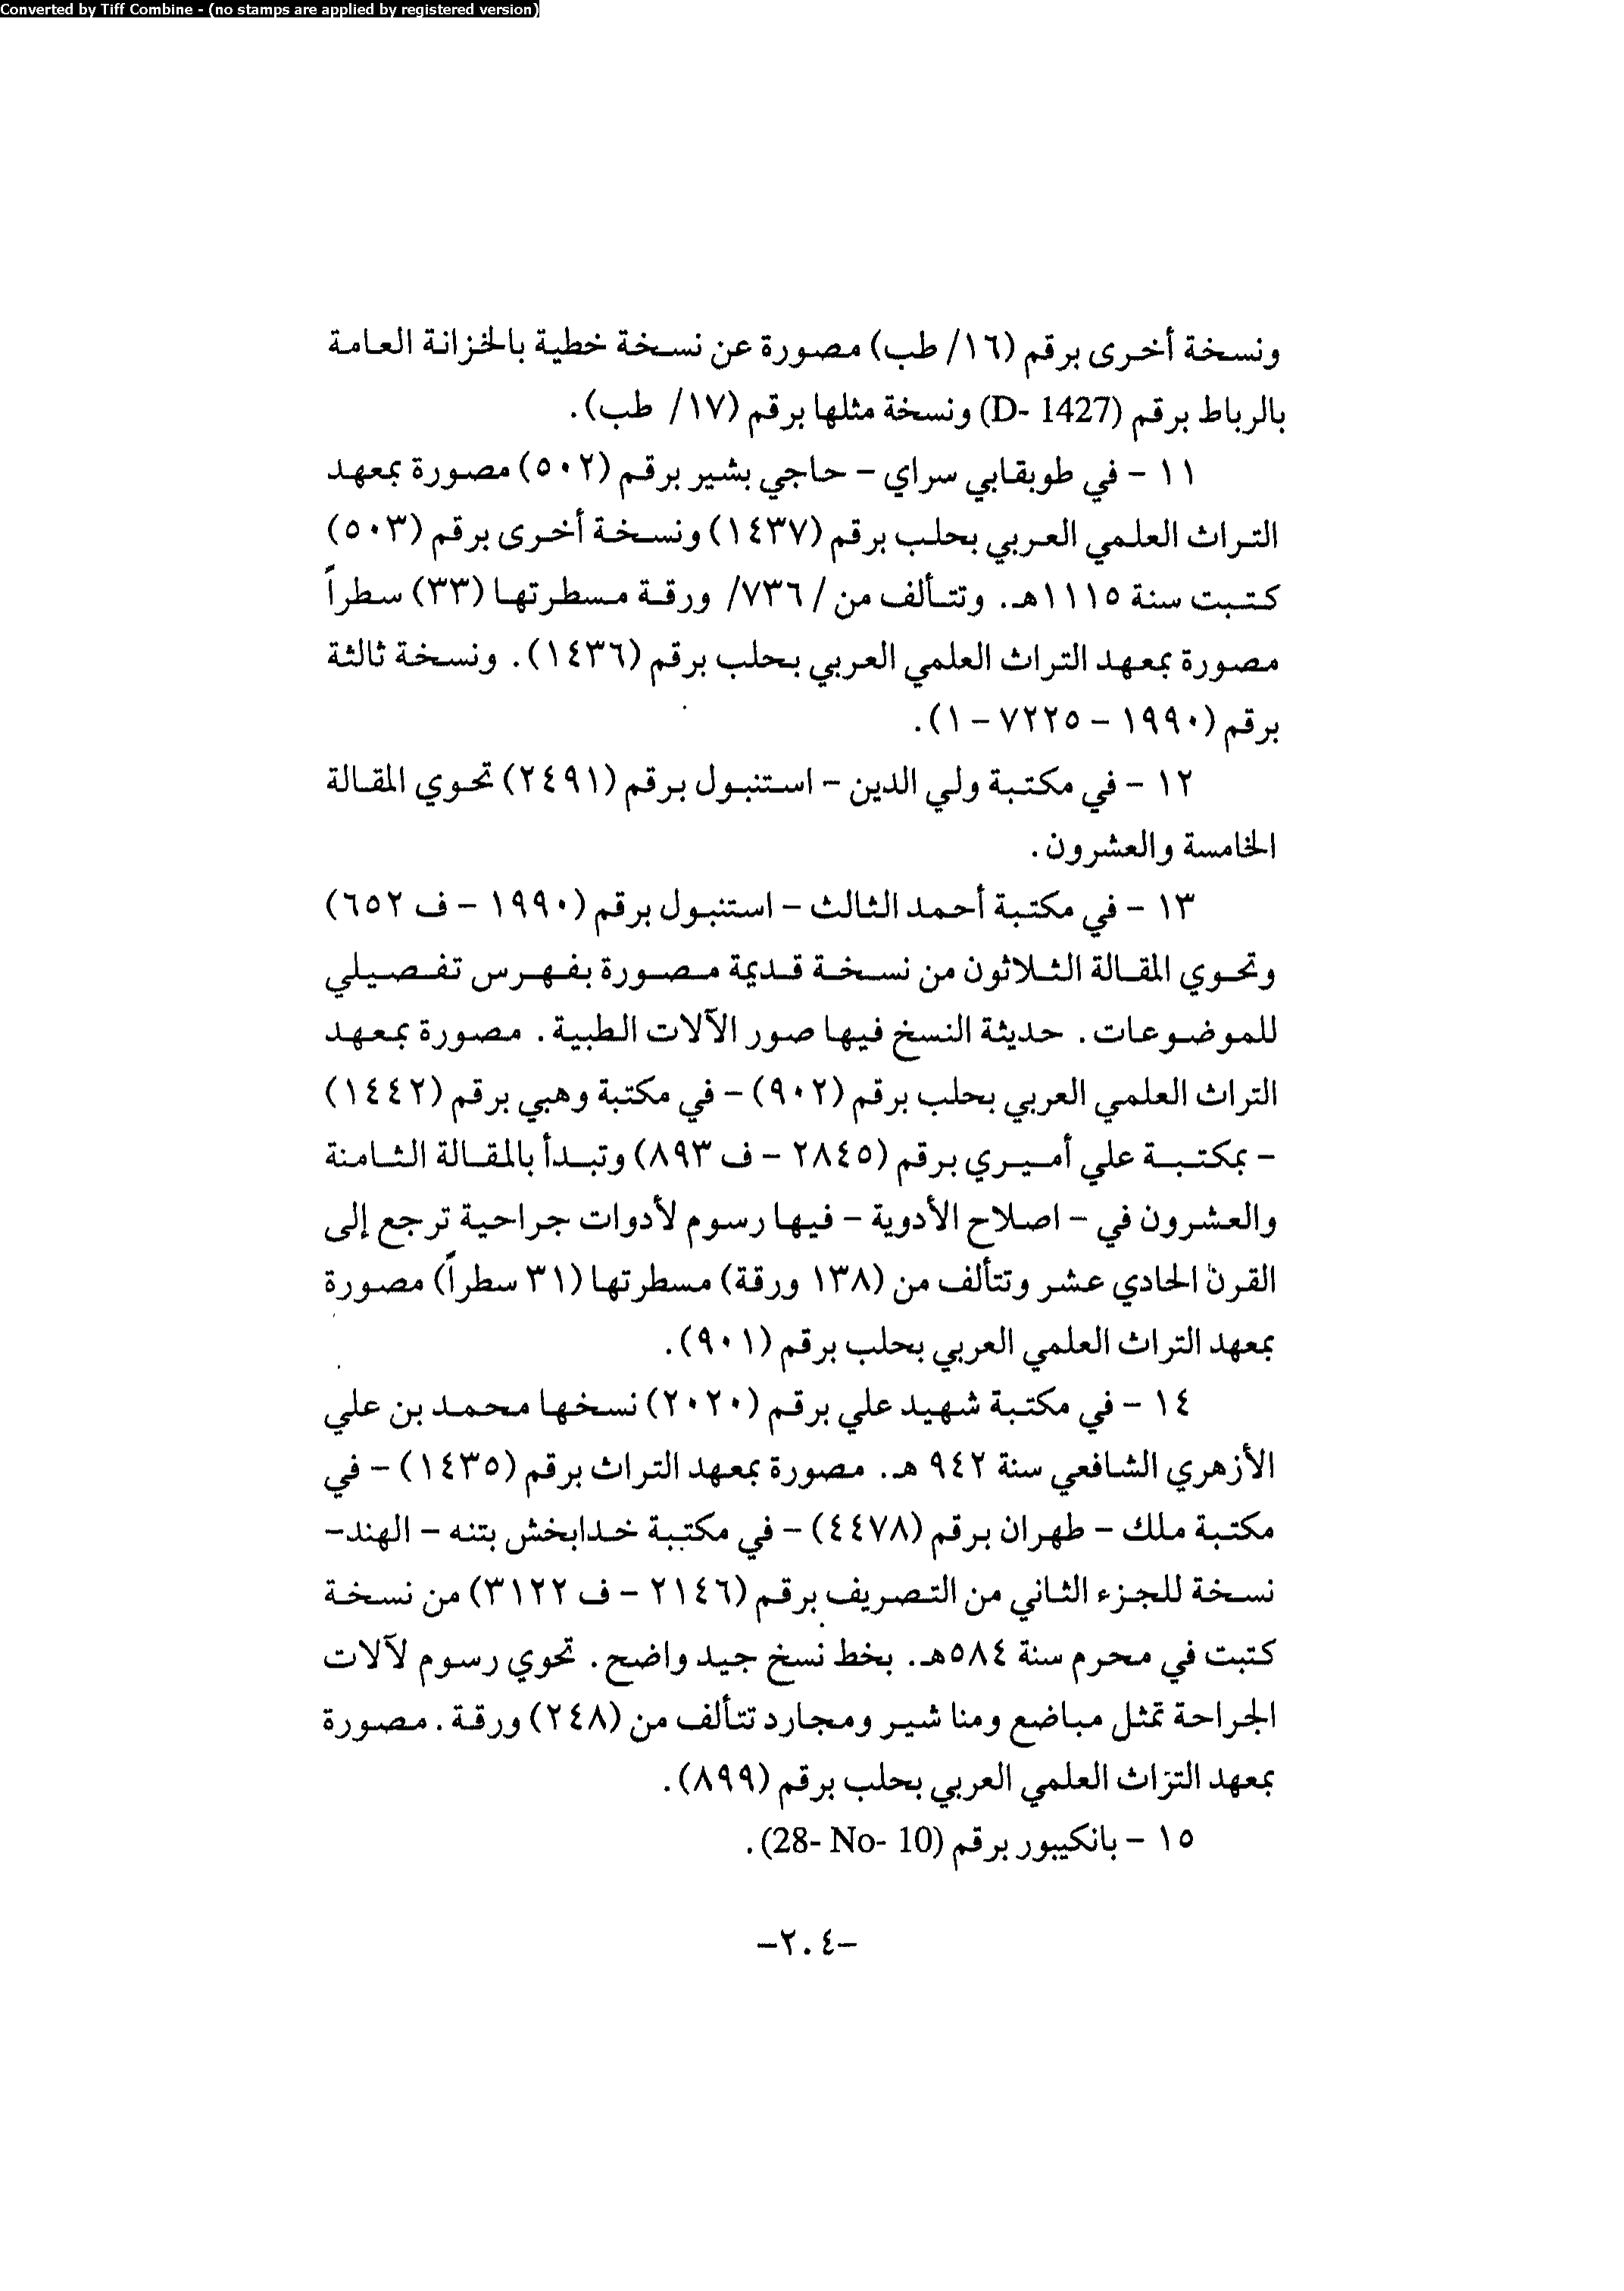 Converted by Tiff Combine - (no stamps are applied by registered version)
ونسخة أخرى برقم (١٦/ طب) مصورة عن نسخة خطية بالخزانة العامة
بالرباط برقم (D- 1427) ونسخة مثلها برقم (١٧/ طب).
١١ - في طوبقابي سراي - حاجي بشير برقم (٥٠٢) مصورة بمعهد
التراث العلمي العربي بحلب برقم (١٤٣٧) ونسخة أخرى برقم (٥٠٣)
كتبت سنة ١١١٥هـ. وتتألف من /٧٣٦/ ورقة مسطرتها (٣٣) سطراً
مصورة بمعهد التراث العلمي العربي بحلب برقم (١٤٣٦). ونسخة ثالثة
برقم (١٩٩٠ - ٧٢٢٥ - ١).
١٢ - في مكتبة ولي الدين - استنبول برقم (٢٤٩١) تحوي المقالة
الخامسة والعشرون.
١٣ - في مكتبة أحمد الثالث - استنبول برقم (١٩٩٠ - ف ٦٥٢)
وتحوي المقالة الثلاثون من نسخة قديمة مصورة بفهرس تفصيلي
للموضوعات. حديثة النسخ فيها صور الآلات الطبية. مصورة بمعهد
التراث العلمي العربي بحلب برقم (٩٠٢) - في مكتبة وهبي برقم (١٤٤٢)
- بمكتبة علي أميري برقم (٢٨٤٥ - ف ٨٩٣) وتبدأ بالمقالة الثامنة
والعشرون في - اصلاح الأدوية - فيها رسوم لأدوات جراحية ترجع إلى
القرن الحادي عشر وتتألف من (١٣٨ ورقة) مسطرتها (٣١ سطراً) مصورة
بمعهد التراث العلمي العربي بحلب برقم (٩٠١).
١٤ - في مكتبة شهيد علي برقم (٢٠٢٠) نسخها محمد بن علي
الأزهري الشافعي سنة ٩٤٢ هـ. مصورة بمعهد التراث برقم (١٤٣٥) - في
مكتبة ملك - طهران برقم (٤٤٧٨) - في مكتبة خدابخش بتنه - الهند-
نسخة للجزء الثاني من التصريف برقم (٢١٤٦ - ف ٣١٢٢) من نسخة
كتبت في محرم سنة ٥٨٤هـ. بخط نسخ جيد واضح. تحوي رسوم لآلات
الجراحة تمثل مباضع ومنا شير ومجارد تتألف من (٢٤٨) ورقة. مصورة
بمعهد التراث العلمي العربي بحلب برقم (٨٩٩).
١٥ - بانكيبور برقم (28- No- 10).
-٢٠٤-